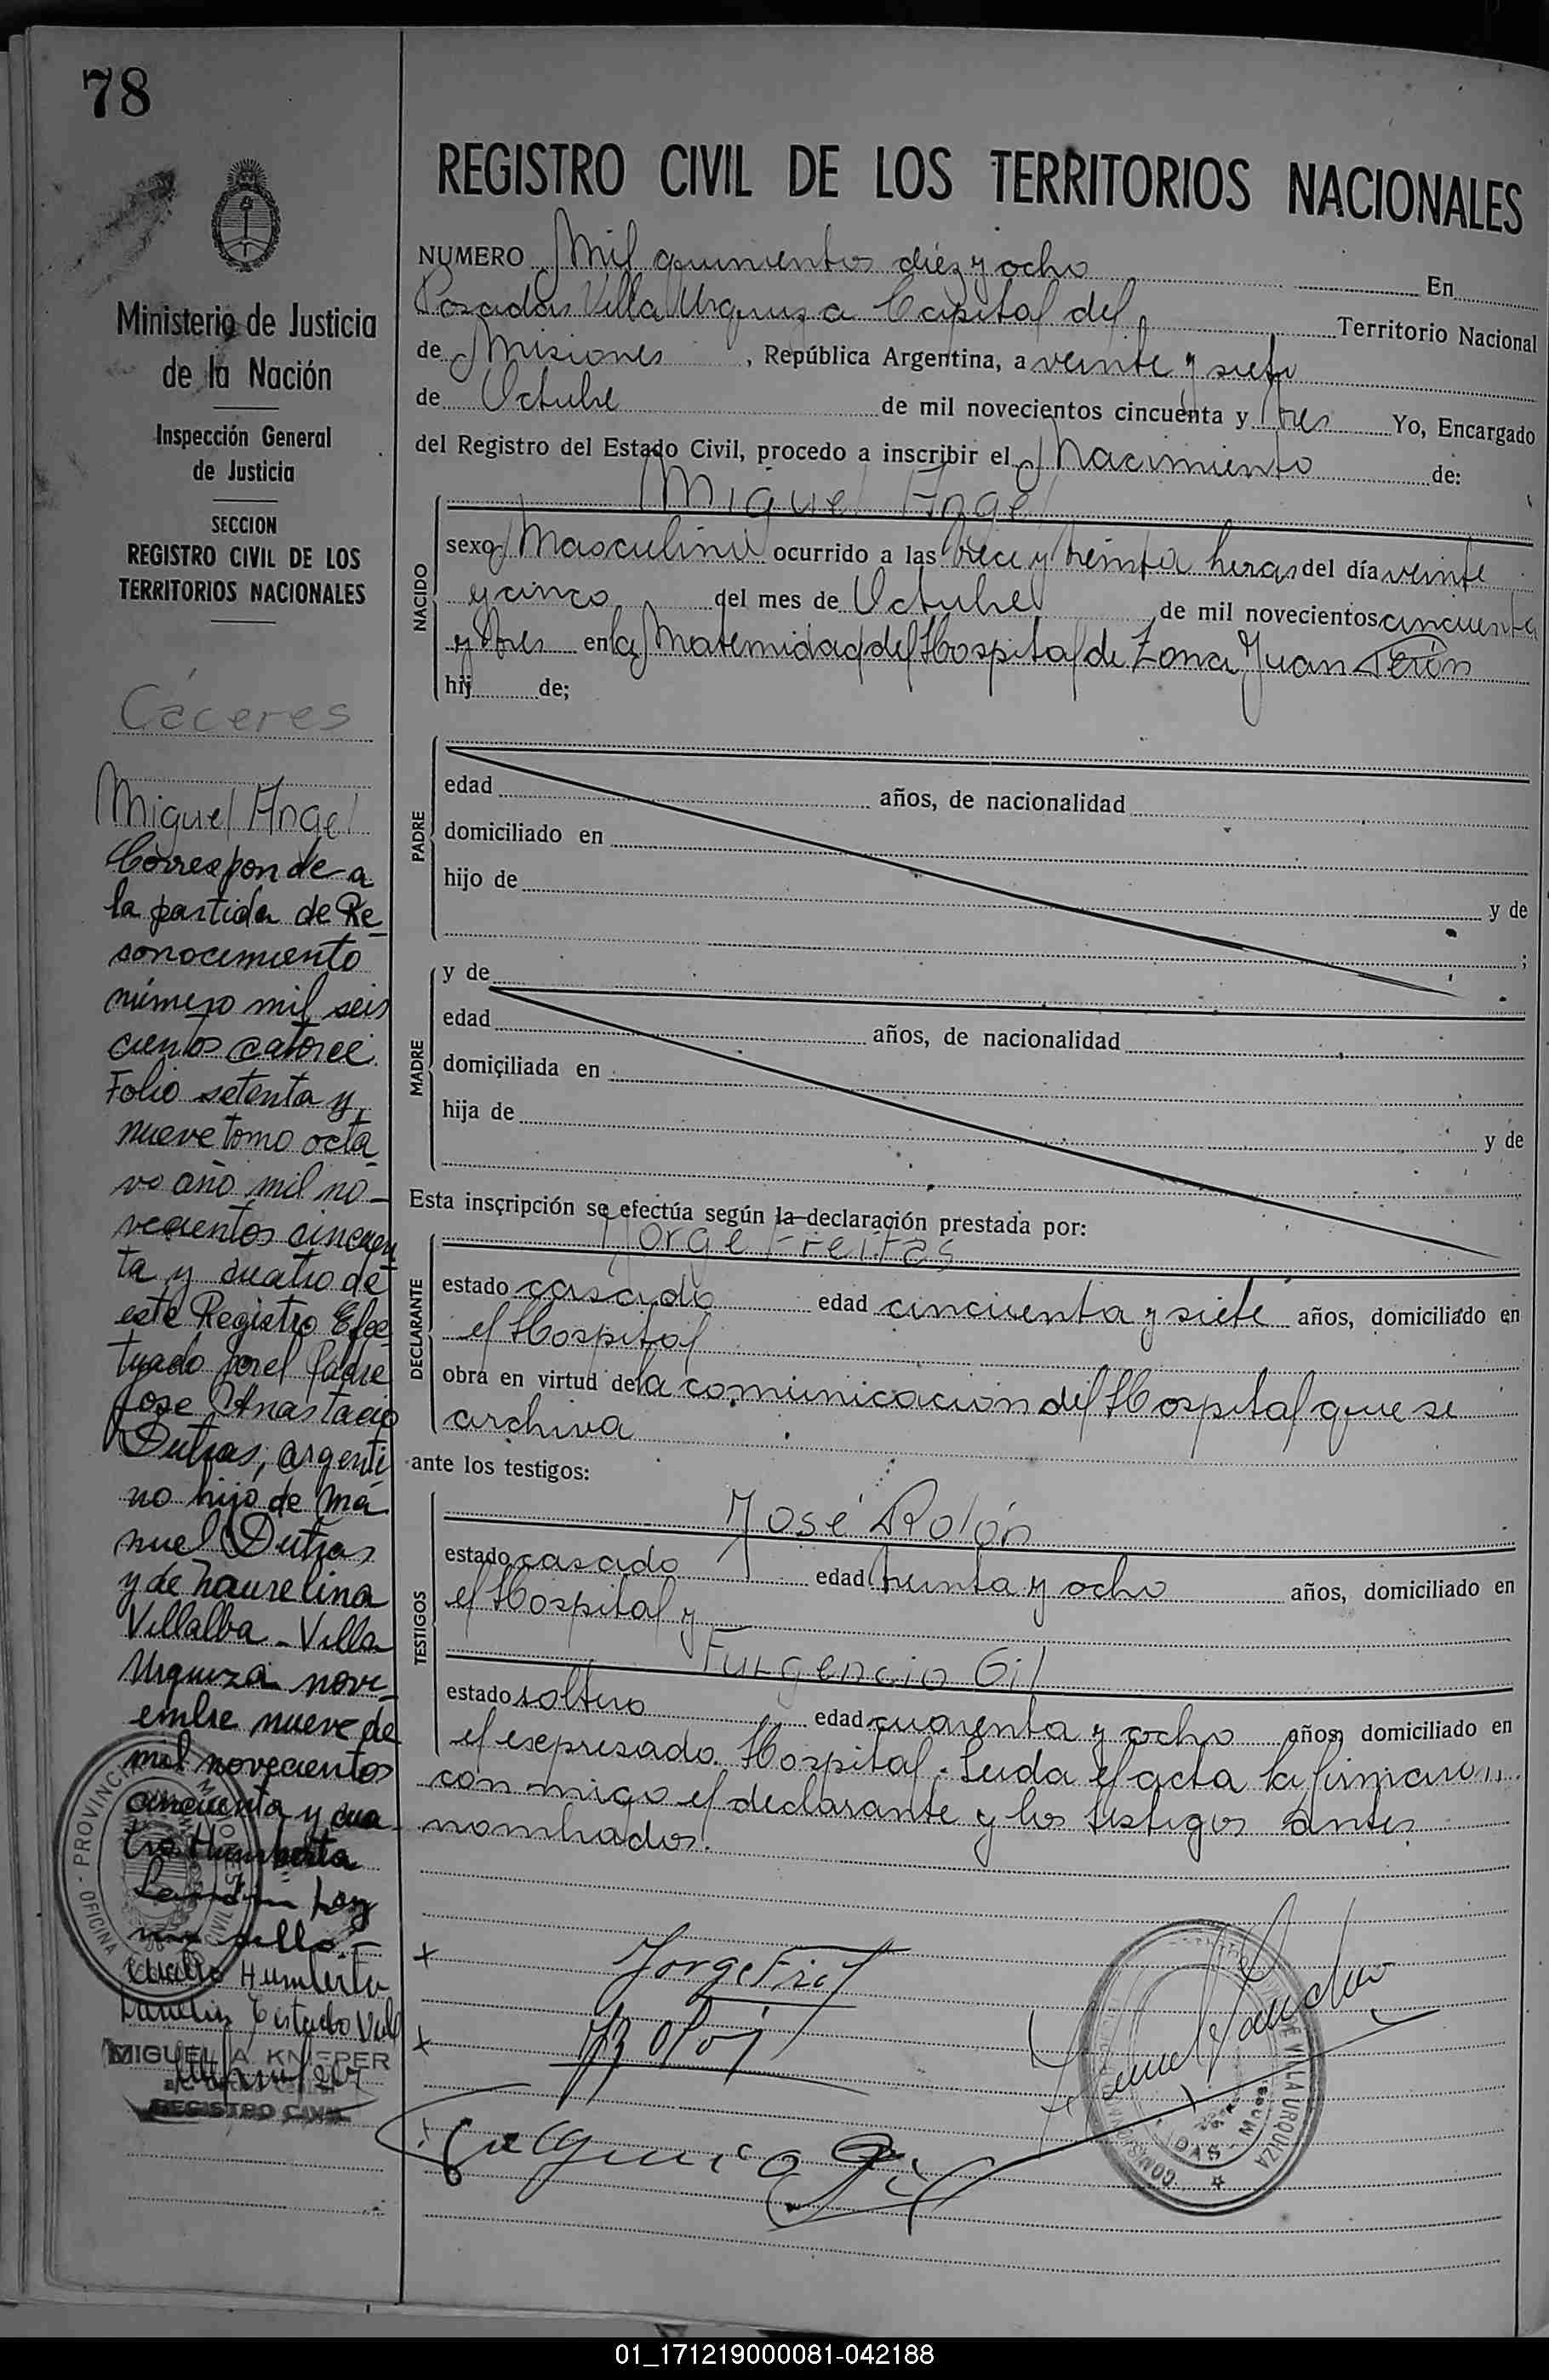 78
Ministerio de Justicia
de la Nación
Inspección General
de Justicia
SECCION
REGISTRO CIVIL DE LOS
TERRITORIOS NACIONALES
Cáceres
Miguel Angel
Corresponde a
la partida de Re-
conocimiento
número mil seis
cientos catorce
Folio setenta y
nueve tomo octa-
vo año mil no-
vecientos cincuen
ta y cuatro de
este Registro Efec
tuado por el Padre
Jose Anastacio
Dutras, argenti
no hijo de Ma
nuel Dutras
y de Laurelina
Villalba - Villa
Urquiza novi-
embre nueve de
mil novecientos
cincuenta y cua
tro Humberto
Landin hay
un sello.-
Humberto
MIGUEL A. KNEPER
REGISTRO CIVIL
REGISTRO CIVIL DE LOS TERRITORIOS NACIONALES
NUMERO Mil quinientos diéz y ocho En
Posadas Villa Urquiza Capital del Territorio Nacional
de Misiones, República Argentina, a veinte y siete
de Octubre de mil novecientos cincuenta y tres Yo, Encargado
del Registro del Estado Civil, procedo a inscribir el Nacimiento de:
NACIDO
Miguel Angel
sexo Masculino ocurrido a las trece y treinta horas del día veinte
y cinco del mes de Octubre de mil novecientos cincuenta
y tres en la Maternidad del Hospital de Zona Juan Perón
hij de;
PADRE
edad años, de nacionalidad
domiciliado en
hijo de y de
;
MADRE
y de
edad años, de nacionalidad
domiciliada en
hija de y de
Esta inscripción se efectúa según la declaración prestada por:
DECLARANTE
Jorge Freitas
estado casado edad cincuenta y siete años, domiciliado en
el Hospital
obra en virtud de la comunicación del Hospital que se
archiva
ante los testigos:
TESTIGOS
José Rolón
estado casado edad treinta y ocho años, domiciliado en
el Hospital y
Fulgencio Gil
estado soltero edad cuarenta y ocho años, domiciliado en
el expresado Hospital. Leida el acta la firmaron
conmigo el declarante y los testigos antes
nombrados.
DE VILLA URQUIZA
01_171219000081-042188